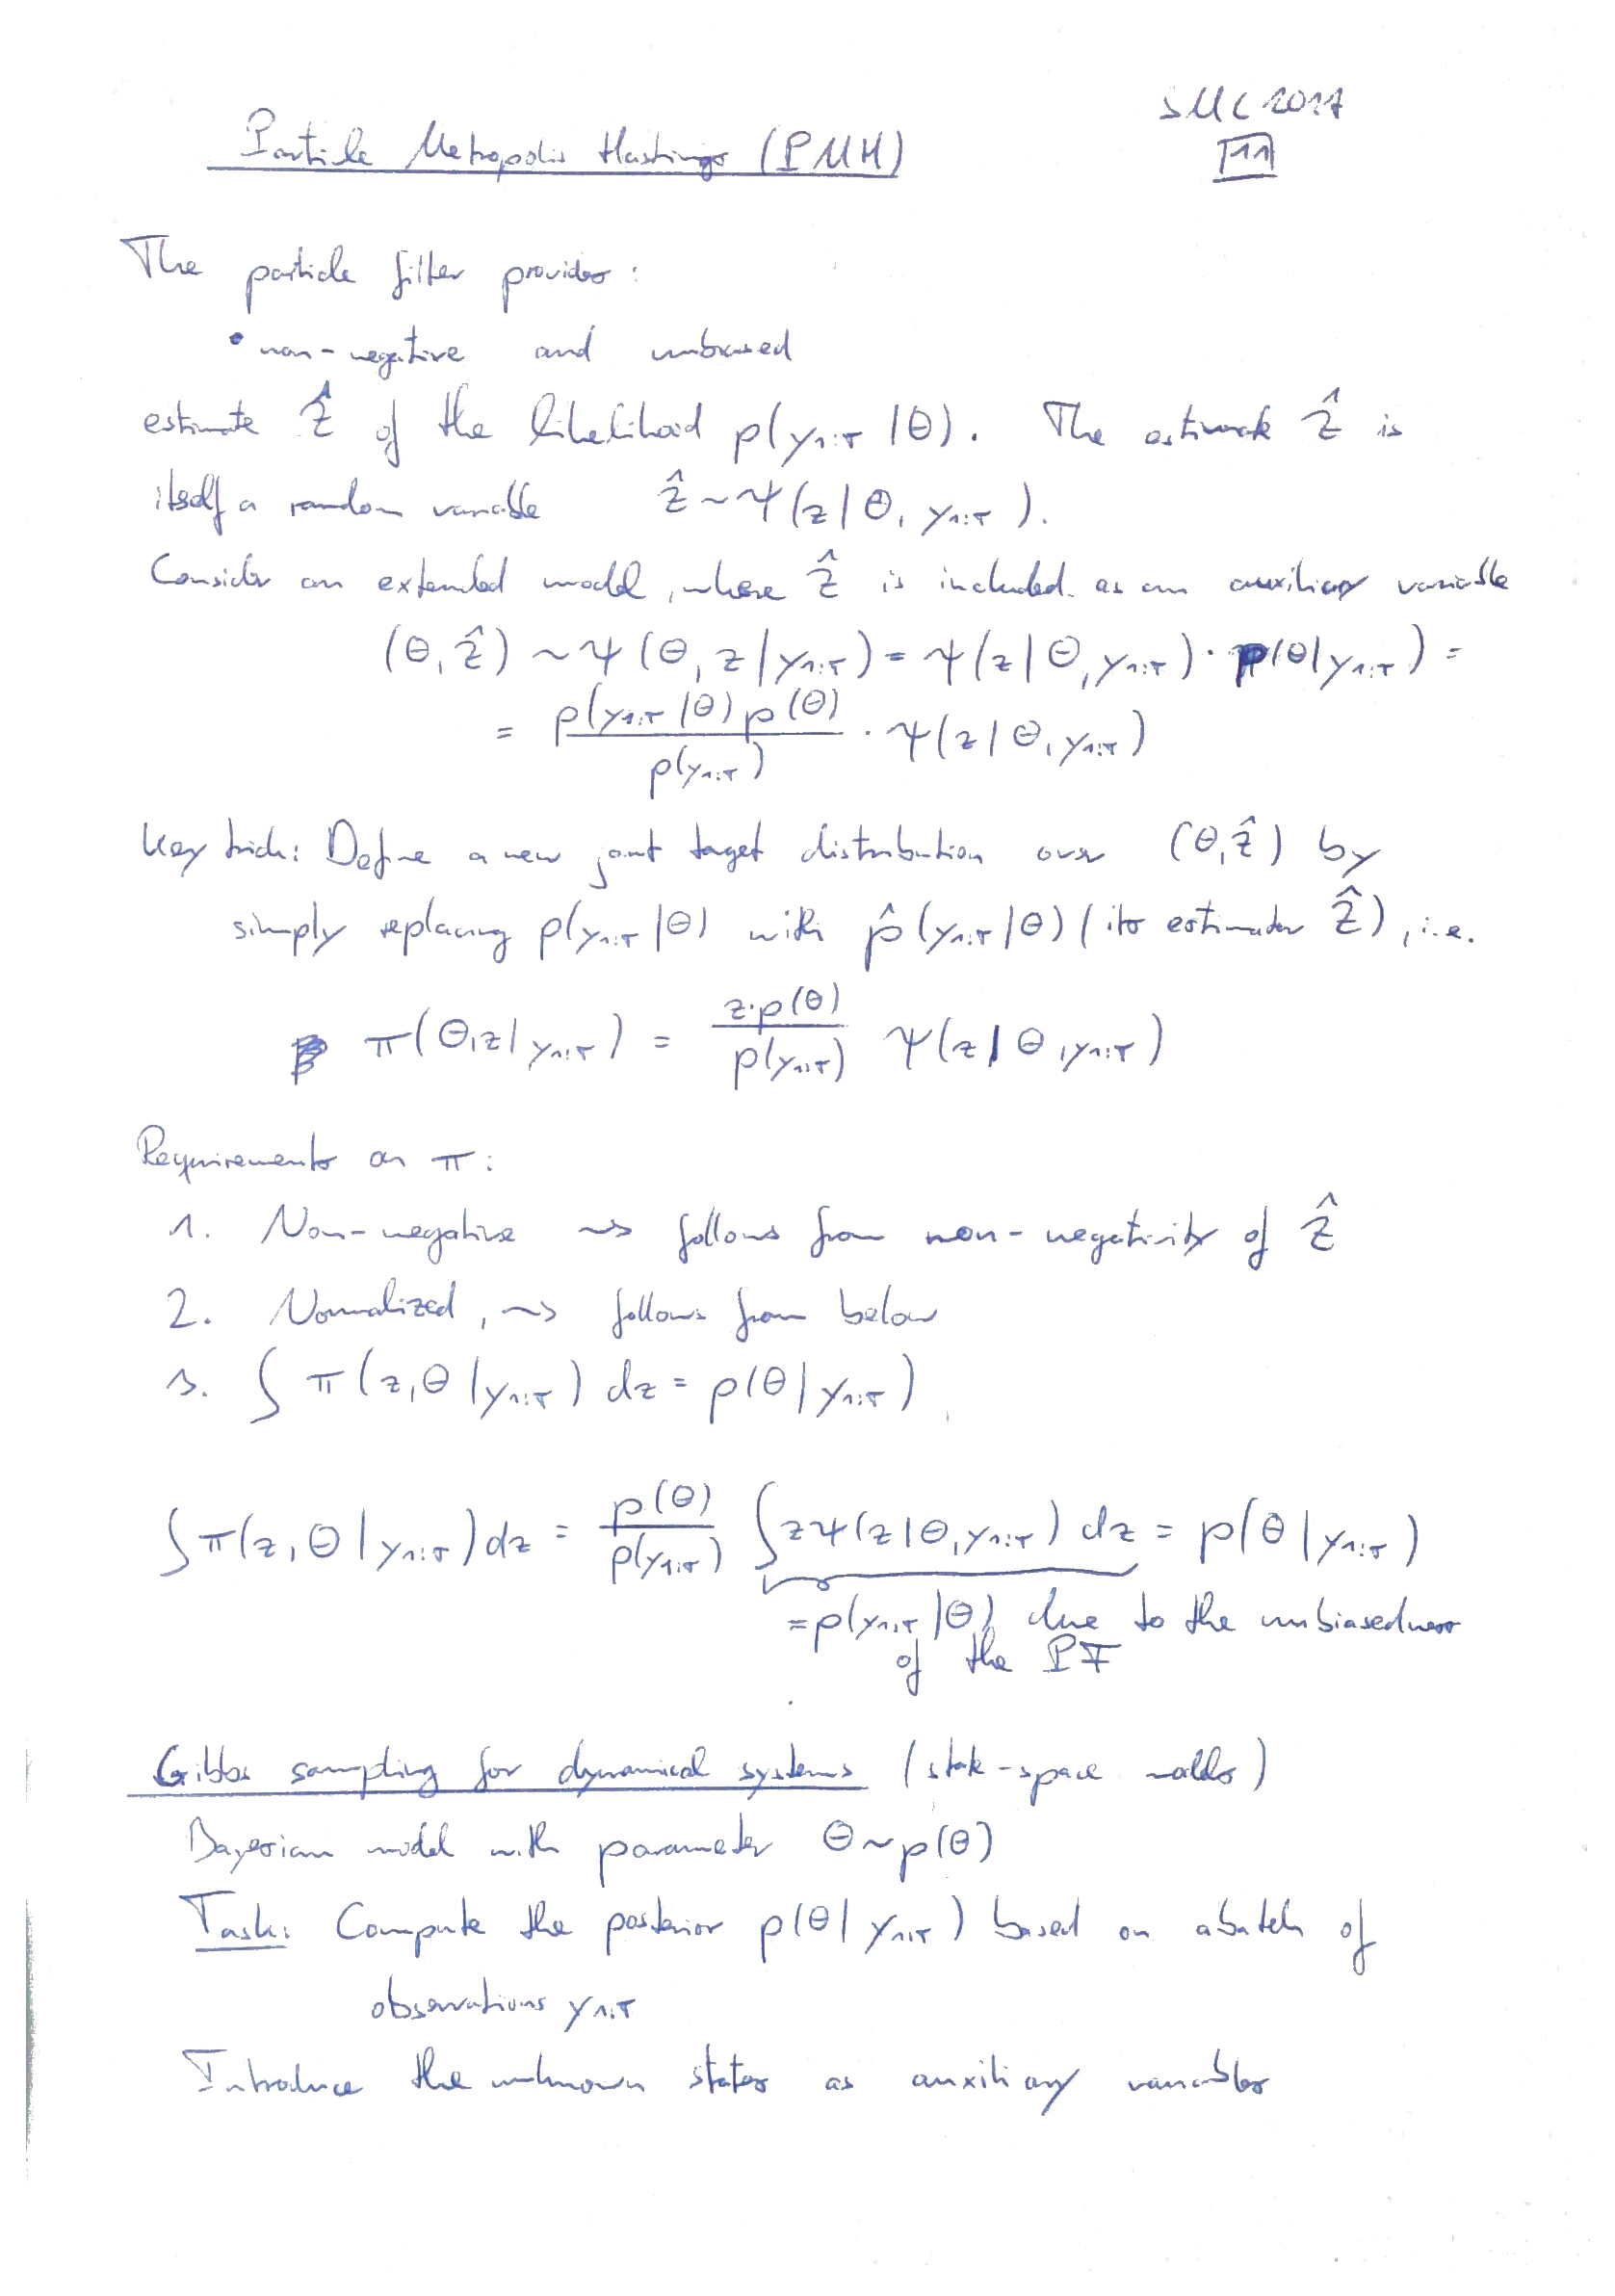 SMC 2017
Particle Metropolis Hastings (PMH)
11
The particle filter provides:
• non-negative and unbiased
estimate Ẑ of the likelihood p(y₁:T | θ). The estimate Ẑ is
itself a random variable ẑ ~ ψ(z | θ, y₁:T).
Consider an extended model, where Ẑ is included as an auxiliary variable
(θ, ẑ) ~ ψ(θ, z | y₁:T) = ψ(z | θ, y₁:T) · p(θ | y₁:T) =
= p(y₁:T | θ) p(θ) / p(y₁:T) · ψ(z | θ, y₁:T)
Key trick: Define a new joint target distribution over (θ, ẑ) by
simply replacing p(y₁:T | θ) with p̂(y₁:T | θ) (its estimator Ẑ), i.e.
π(θ, z | y₁:T) = z·p(θ) / p(y₁:T) ψ(z | θ, y₁:T)
Requirements on π:
1. Non-negative ⇝ follows from non-negativity of Ẑ
2. Normalized, ⇝ follows from below
3. ∫ π(z, θ | y₁:T) dz = p(θ | y₁:T)
∫ π(z, θ | y₁:T) dz = p(θ) / p(y₁:T) ∫ z ψ(z | θ, y₁:T) dz = p(θ | y₁:T)
= p(y₁:T | θ) due to the unbiasedness
of the PF
Gibbs sampling for dynamical systems (state-space models)
Bayesian model with parameter θ ~ p(θ)
Task: Compute the posterior p(θ | y₁:T) based on a batch of
observations y₁:T
Introduce the unknown states as auxiliary variables